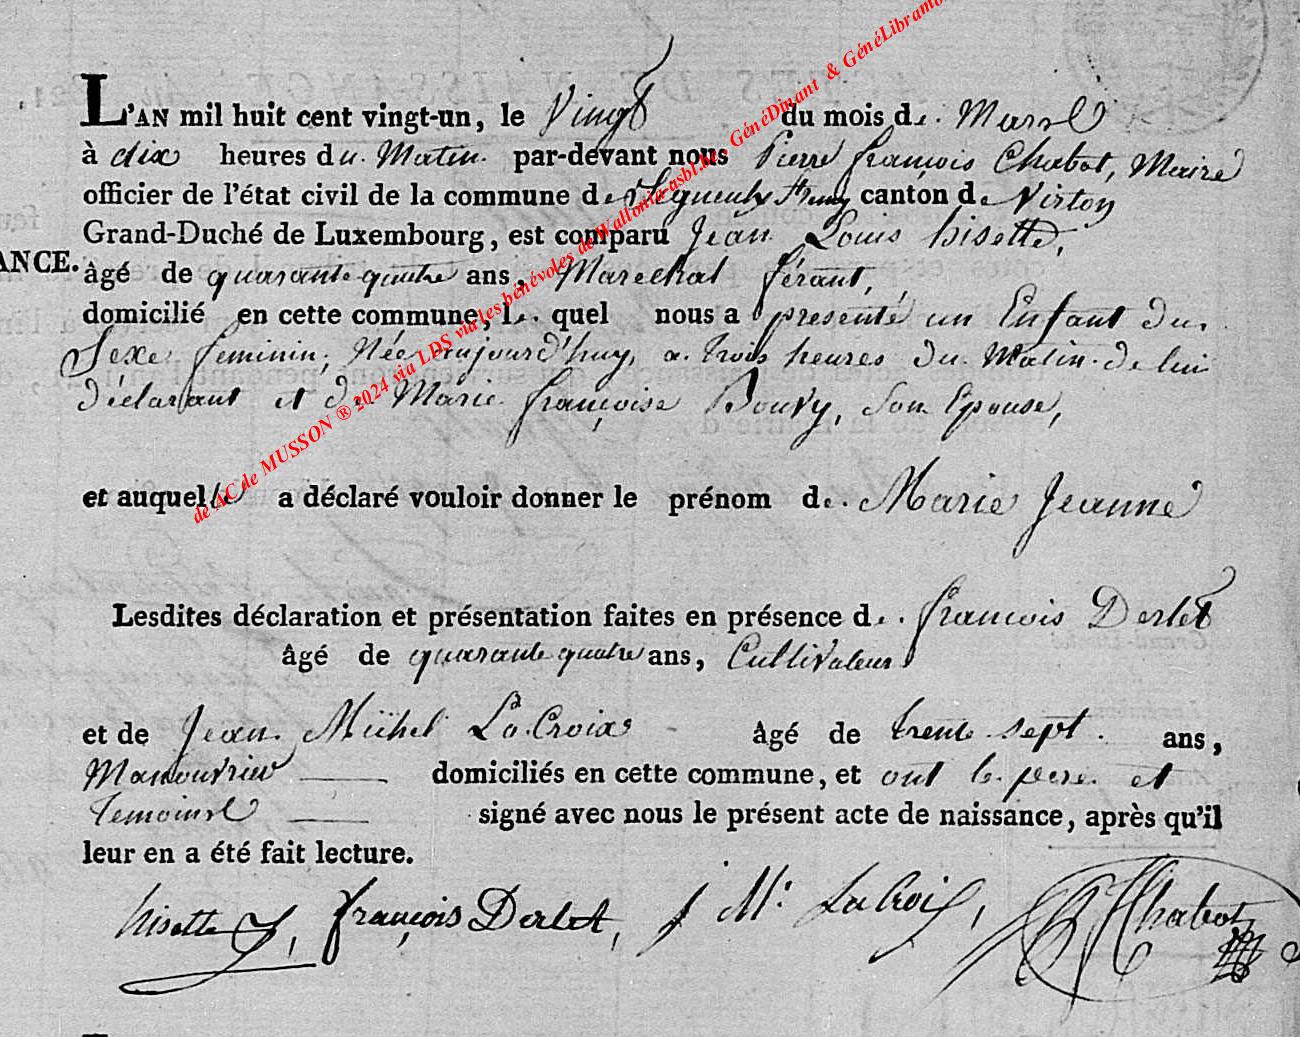 L'AN mil huit cent vingt-un, le Vingt du mois de Mars
à dix heures du Matin par-devant nous Pierre françois Chabot, Maire
officier de l'état civil de la commune de canton de Virton
Grand-Duché de Luxembourg, est comparu Jean Louis hisette,
ANCE. âgé de quarante-quatre ans, Marechal férant,
domicilié en cette commune, le quel nous a presenté un Enfant du
Sexe feminin, Née aujourd'huy, a trois heures du Matin de lui
déclarant et de Marie françoise Bouvy, son Epouse,
et auquelle a déclaré vouloir donner le prénom de Marie Jeanne
Lesdites déclaration et présentation faites en présence de francois Derlet
âgé de quarante quatre ans, Cultivateur
et de Jean Michel La Croix âgé de trente sept ans,
Manouvrier domiciliés en cette commune, et ont le pere et
Temoins signé avec nous le présent acte de naissance, après qu'il
leur en a été fait lecture.
hisette, françois Derlet, J M. LaCroix, Chabot
de AC de MUSSON ® 2024 via LDS via les bénévoles de Wallonia-asbl.be, GénéDinant & GénéLibramo